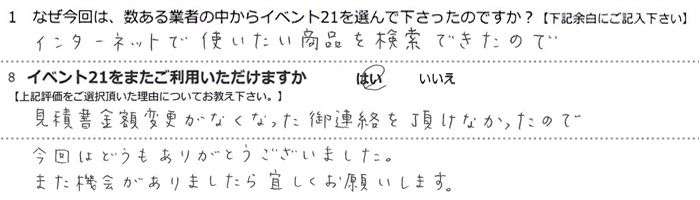 1 なぜ今回は、数ある業者の中からイベント21を選んで下さったのですか？【下記余白にご記入下さい】
インターネットで使いたい商品を検索できたので
8 イベント21をまたご利用いただけますか はい いいえ
【上記評価をご選択頂いた理由についてお教え下さい。】
見積書金額変更がなくなった御連絡を頂けなかったので
今回はどうもありがとうございました。
また機会がありましたら宜しくお願いします。